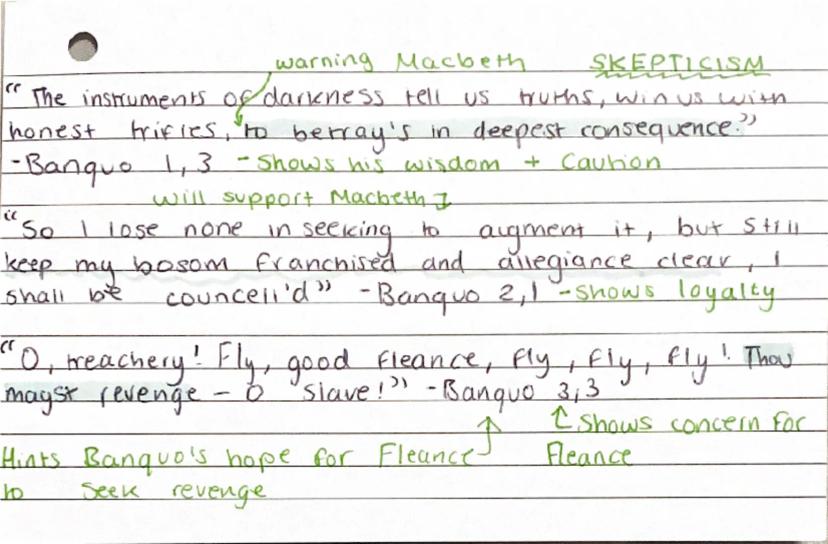 warning Macbeth SKEPTICISM
"The instruments of darkness tell us truths, win us with
honest trifles, to betray's in deepest consequence."
-Banquo 1,3 - Shows his wisdom + Caution
will support Macbeth
"So I lose none in seeking to augment it, but still
keep my bosom franchised and allegiance clear, I
shall be councell'd" -Banquo 2,1 - shows loyalty
"O, treachery! Fly, good fleance, fly, fly, fly! Thou
mayst revenge - O slave!" -Banquo 3,3
Shows concern for
Hints Banquo's hope for Fleance Fleance
to seek revenge